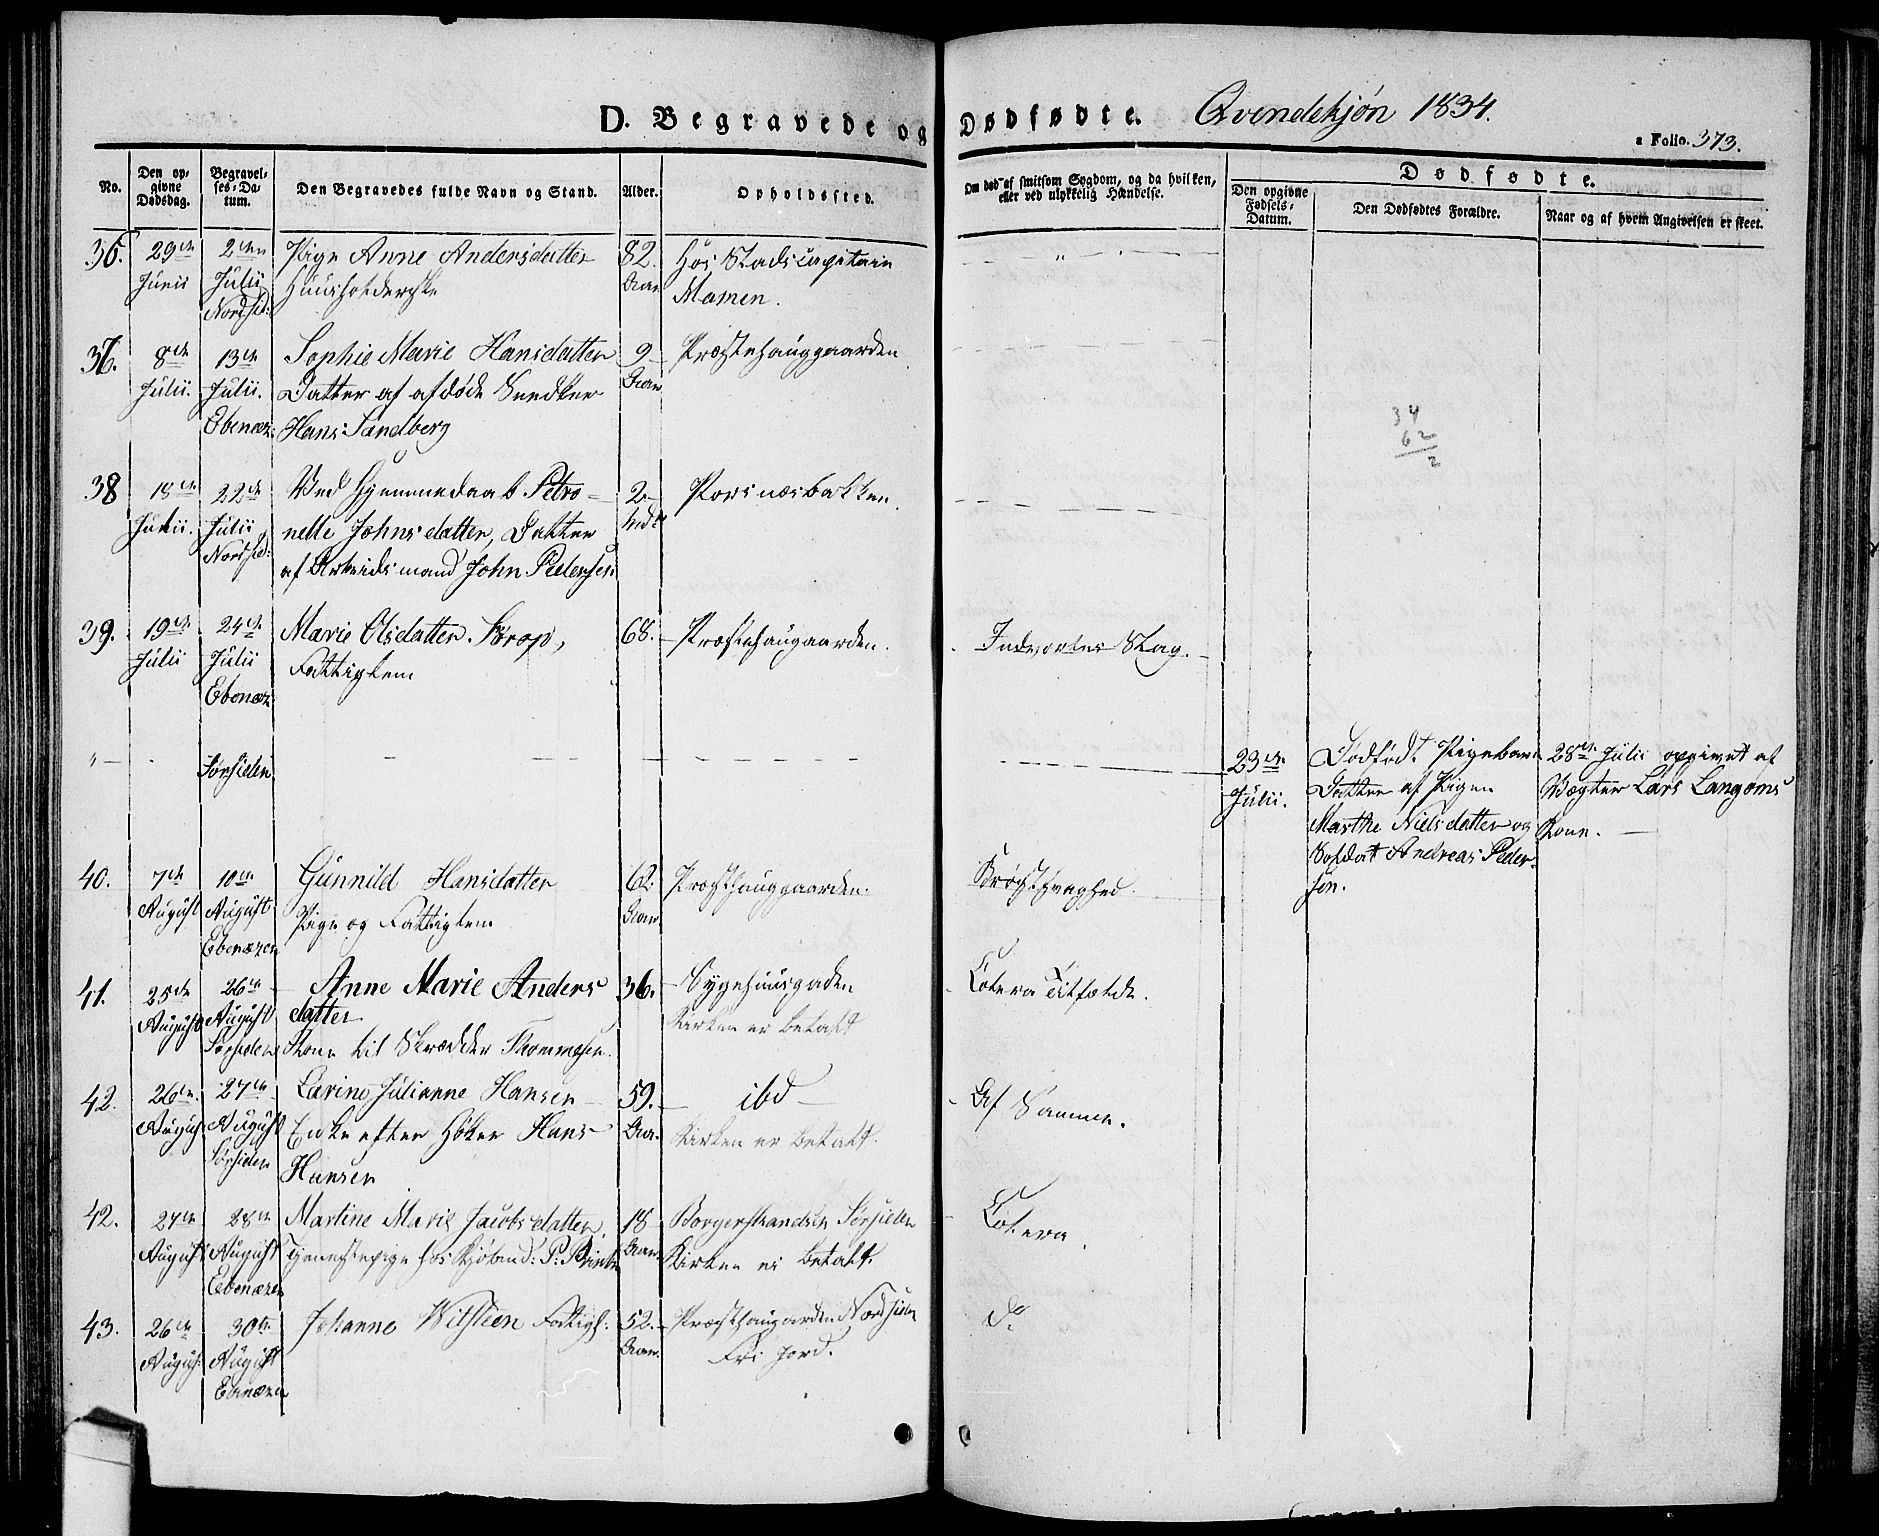 D. Begravede og Dødfødte. Qvendekjøn 1834.
a Folio. 373.
No.
Den op-
givne
Dødsdag.
Begravel-
ses-Da-
tum.
Den Begravedes fulde Navn og Stand.
Alder.
Opholdssted.
Om død af smitsom Sygdom, og da hvilken,
eller ved ulykkelig Hændelse.
Dødfødte.
Den opgivne
Fødsels-
Datum.
Den Dødfødtes Forældre.
Naar og af hvem Angivelsen er skeet.
36. 29de 2den Pige Anne Andersdatter 82. Hos Stadscapitain
Junii Julii Huusholderske Aar Mamen.
Nordsid:
8de 13de Sophie Marie Hansdatter 9 Præstehauggaarden
Julii. Julii. Datter af afdøde Snedker Aar
Ebenæz: Hans Sandberg
34
62
2
38 18de 22de Ved Hjemmedaab Petro- 2 Porsnæsbakken.
Julii. Julii nelle Johnsdatter, Datter
Nordsid: af Arbeidsmand John Pedersen
39. 19de 24de Marie Olsdatter 68. Præstehaugaarden. Indvortes Slag.
Julii Julii Fattiglem
Ebenæz
Sørsiden 23de Dødfødt Pigebarn 28de Julii opgivet af
Julii. Datter af Pigen Vægter Lars Langøms
Marthe Nielsdatter og Kone.
Soldat Andreas Peder-
sen.
40. 7de 10de Gunnild Hansdatter 62 Præsthauggaarden. Brøstsvaghed.
August August Pige og Fattiglem Aar
Ebenæzer
41. 25de 26de Anne Marie Anders 36. Sygehuusgaden Colera Tilfælde.
August August datter Kirken er betalt
Sørsiden Kone til Skrædder Thommesen.
42. 26de 27de Larine Julianne Hansen 59. ibd
August August Enke efter Høker Hans Aar. Kirken er betalt.
Sørsiden Hansen
42. 27de 28de Martine Marie Jacobsdatter, 18 Borgerstranden Sørsiden Colera.
August August Tjenestepige hos Kjøbmd: P: Aar Kirken er betalt.
Ebenæzer
43. 26de 30te Johanne Wilsteen Fattigl: 52. Præsthaugarden Nordsiden do
August August Aar. Fri Jord.
Ebenæzer